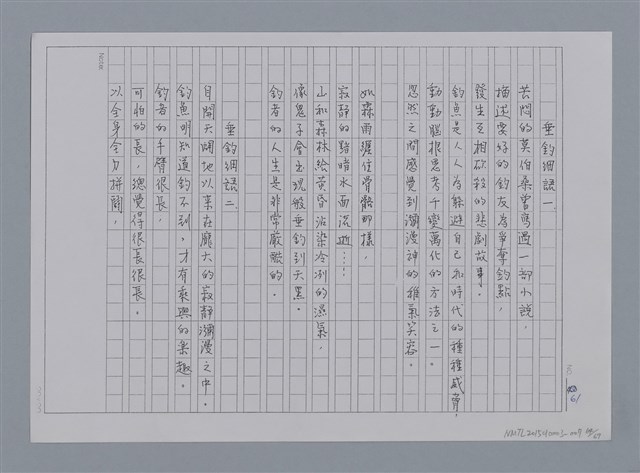 垂釣細語一
苦悶的莫伯桑曾寫過一部小說，
描述要好的釣友為爭奪釣點，
發生互相砍殺的悲劇故事。
釣魚是人人為躲避自己和時代的種種威脅，
動動腦根思考千變萬化的方法之一。
忽然之間感覺到瀰漫神的稚氣笑容。
如霖雨遲住骨骸那樣，
寂靜的黯暗水面流逝……
山和森林給黃昏沾染冷冽的濕氣，
像鬼子會出現般垂釣到天黑。
釣者的人生是非常嚴酷的。
垂釣細語二
自開天闢地以來在龐大的寂靜瀰漫之中。
釣魚明知道釣不到，才有乘興的樂趣。
釣者的手臂很長，
可怕的長，總覺得很長很長。
以全身全力拼鬪，
Note
8
61
NMTL20150110003-007
333